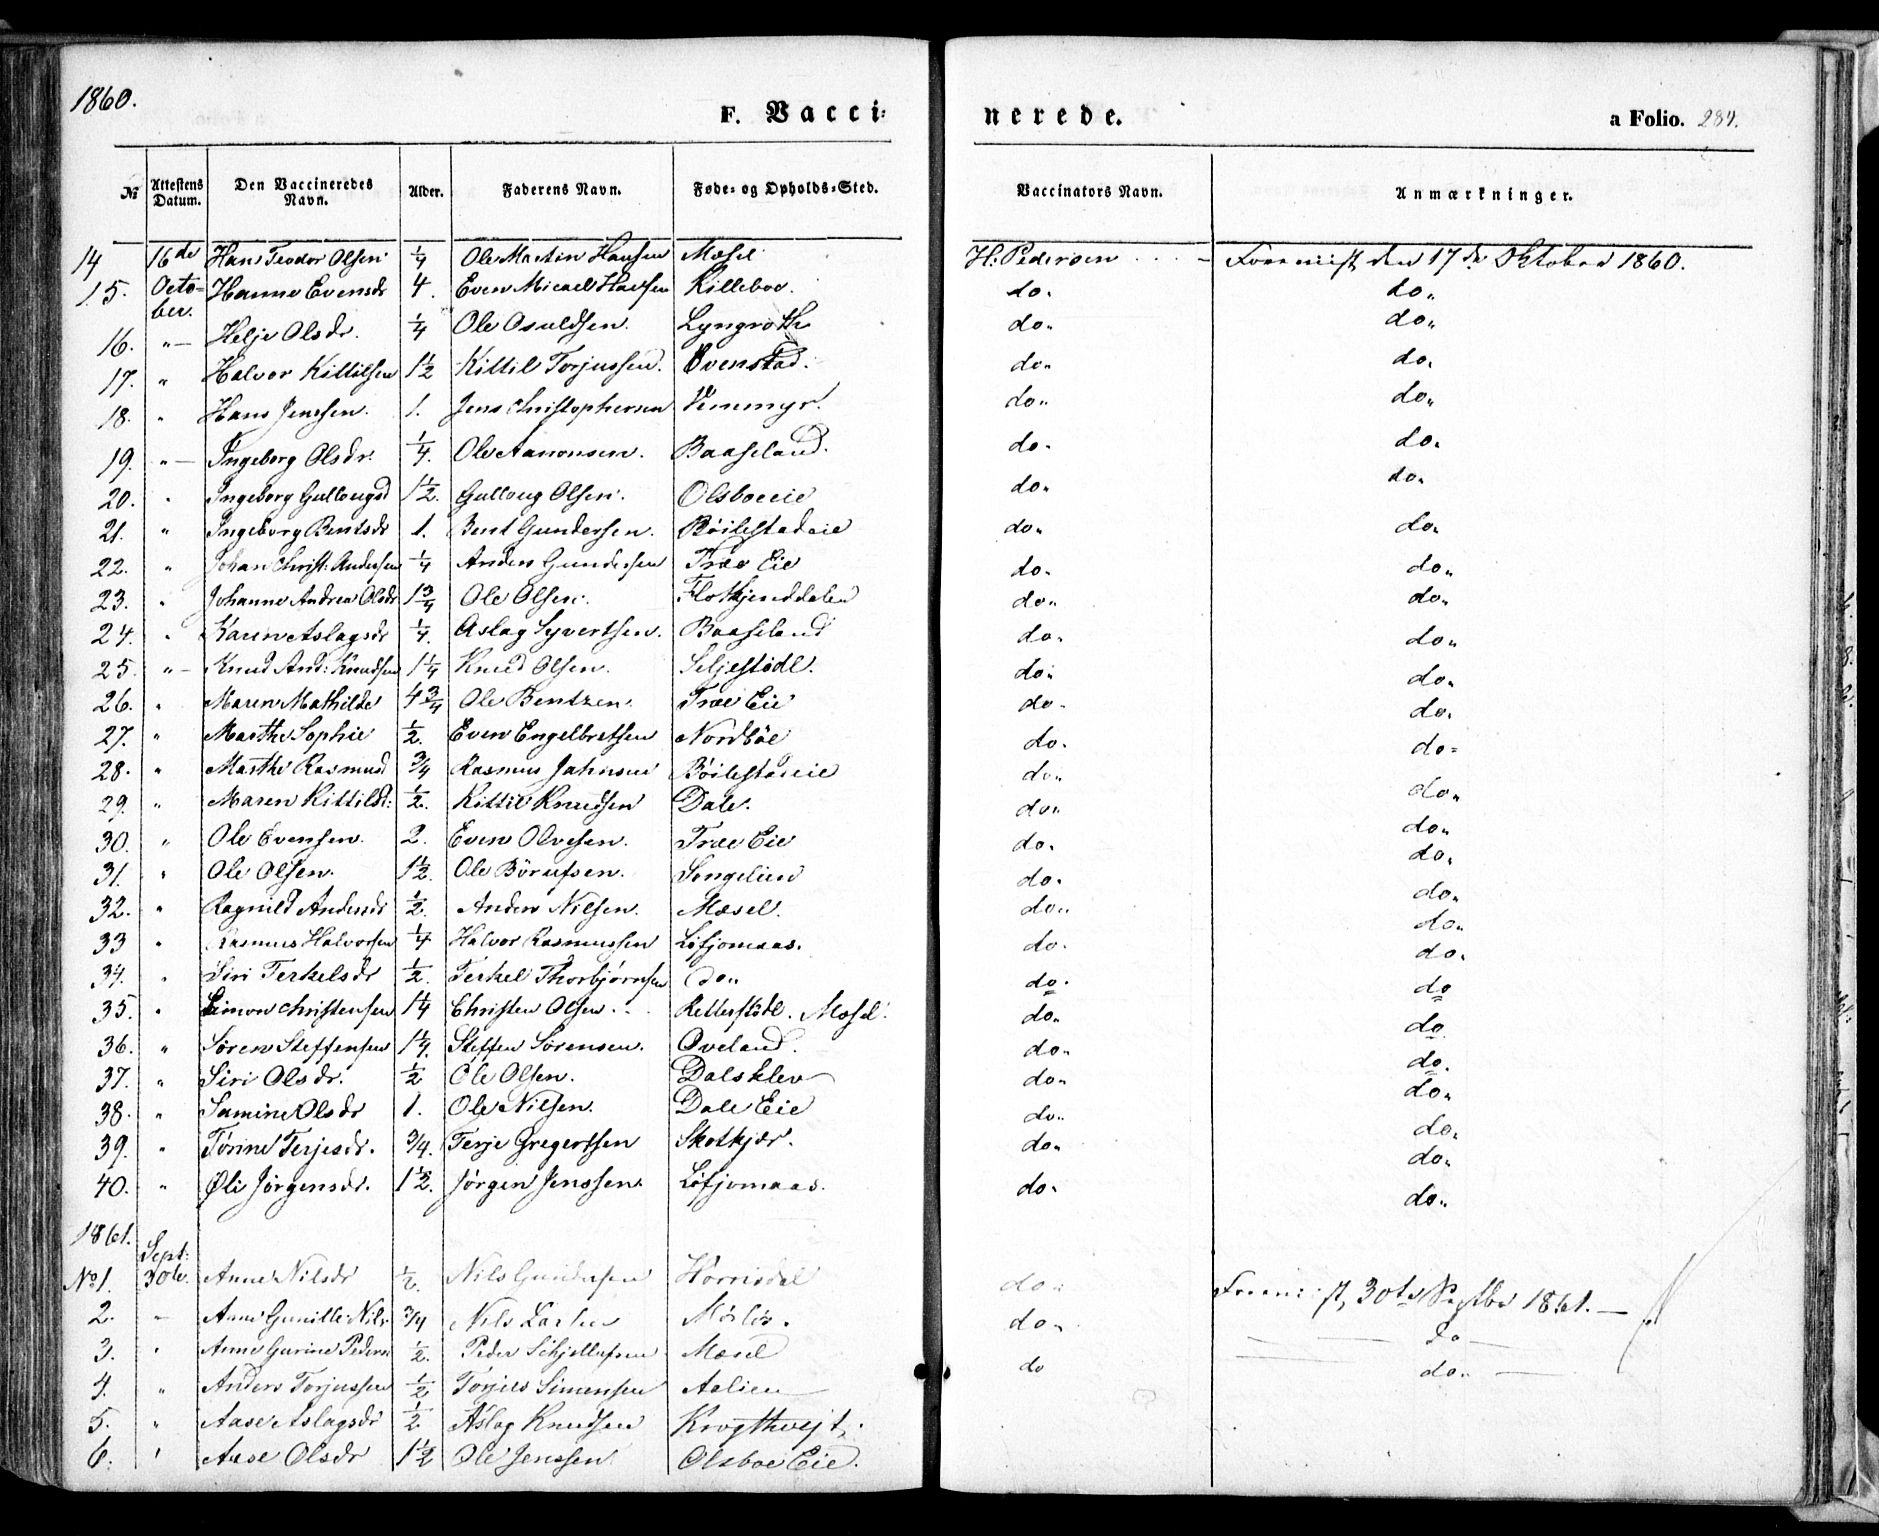 1860.
F. Vacci=
nerede.
a Folio. 287.
No Attestens Datum. Den Vaccineredes Navn. Alder. Faderens Navn. Føde= og Opholds=Sted. Vaccinators Navn. Anmærkninger.
14 16de Hans Teodor Olsen 1/4 Ole Martin Hansen Mæsel H: Pedersen - Foreviist den 17de Oktober 1860.
15. Octo- ber. Hanne Evensdr 4. Even Micael Halfsen Killeboe. do. do.
16. " Helje Olsdr. 1/4 Ole Osuldsen. Lyngroth do. do.
17. " Halvor Kittilsen 1 1/2 Kittil Torjussen. Evenstad. do. do.
18. " Hans Jenssen. 1. Jens Christophersen Vemmyr. do. do.
19. " Ingeborg Olsdr. 1/4. Ole Aanonsen. Baaseland. do. do.
20. " Ingeborg Gullougsd 1 1/2. Gulloug Olsen. Olsboeeie do. do.
21. " Ingeborg Bentsdr 1. Bent Gundersen. Böilestadeie do. do.
22. " Johan Christ: Andersen 1/4 Anders Gundersen Træe Eie do. do.
23. " Johanne Andrea Olsdr 1 3/4 Ole Olsen. Flotkjenddalen do. do.
24. " Karen Aslagsdr 1/4. Aslag Syvertsen. Baaseland do. do.
25. " Knud And: Knudsen 1 1/4 Knud Olsen. Seljestödl. do. do.
26. " Maren Mathilde 4 3/4 Ole Bentzen. Træe Eie do. do.
27. " Marthe Sophie 1/2. Even Engelbretsen Nordböe do. do.
28. " Marthe Rasmusd 3/4 Rasmus Jahnsen Böilestadeie do. do.
29. " Maren Kittilsd: 1/2. Kittil Knudsen Dale. do. do.
30. " Ole Evensen. 2. Even Olvesen. Træe Eie do. do.
31. " Ole Olsen. 1 1/2. Ole Börufsen. Songelien do. do.
32. " Ragnild Andersdr 1/2. Anders Nilsen. Mæsel. do. do.
33 " Rasmus Halvorsen 1/4 Halvor Rasmussen Løfjomaas. do. do.
34. " Siri Terkelsdr 1/2. Terkel Thorbjørnsen do. do. do
35. " Simon Christensen 1 1/4 Christen Olsen. Retterstödl. Mæsel. do. do
36. " Sören Steffensen 1 1/4. Steffen Sörensen. Oveland. do. do.
37. " Siri Olsdr. 1/2 Ole Olsen. Dalsklev do. do.
38. " Samine Olsdr 1. Ole Nilsen. Dale Eie do. do.
39. " Tørine Terjesdr. 3/4. Terje Gregertssen Skotkjær. do. do.
40. " Øli Jørgensdr. 1 1/2. Jørgen Jenssen. Løfjomaas. do. do.
1861.
No 1. Sept: 30te. Anne Nilsdr 1/2. Nils Gundersen Hornsdal do. Foreviist, 30te Septbr 1861. —
2. " Anne Gunille Nils 3/4 Nils do. do
3. " Anne Gurine Peders 1/2. Peder Schjellufsen Mæsel do do.
4. " Anders Torjussen 1/2 Torjus Simensen Aalien
5. " Aase Aslagsdr 1/2 Aslag Knudsen Krogthvejt.
6. " Aase Olsdr 1 1/2 Ole Jenssen Olsboe Eie.